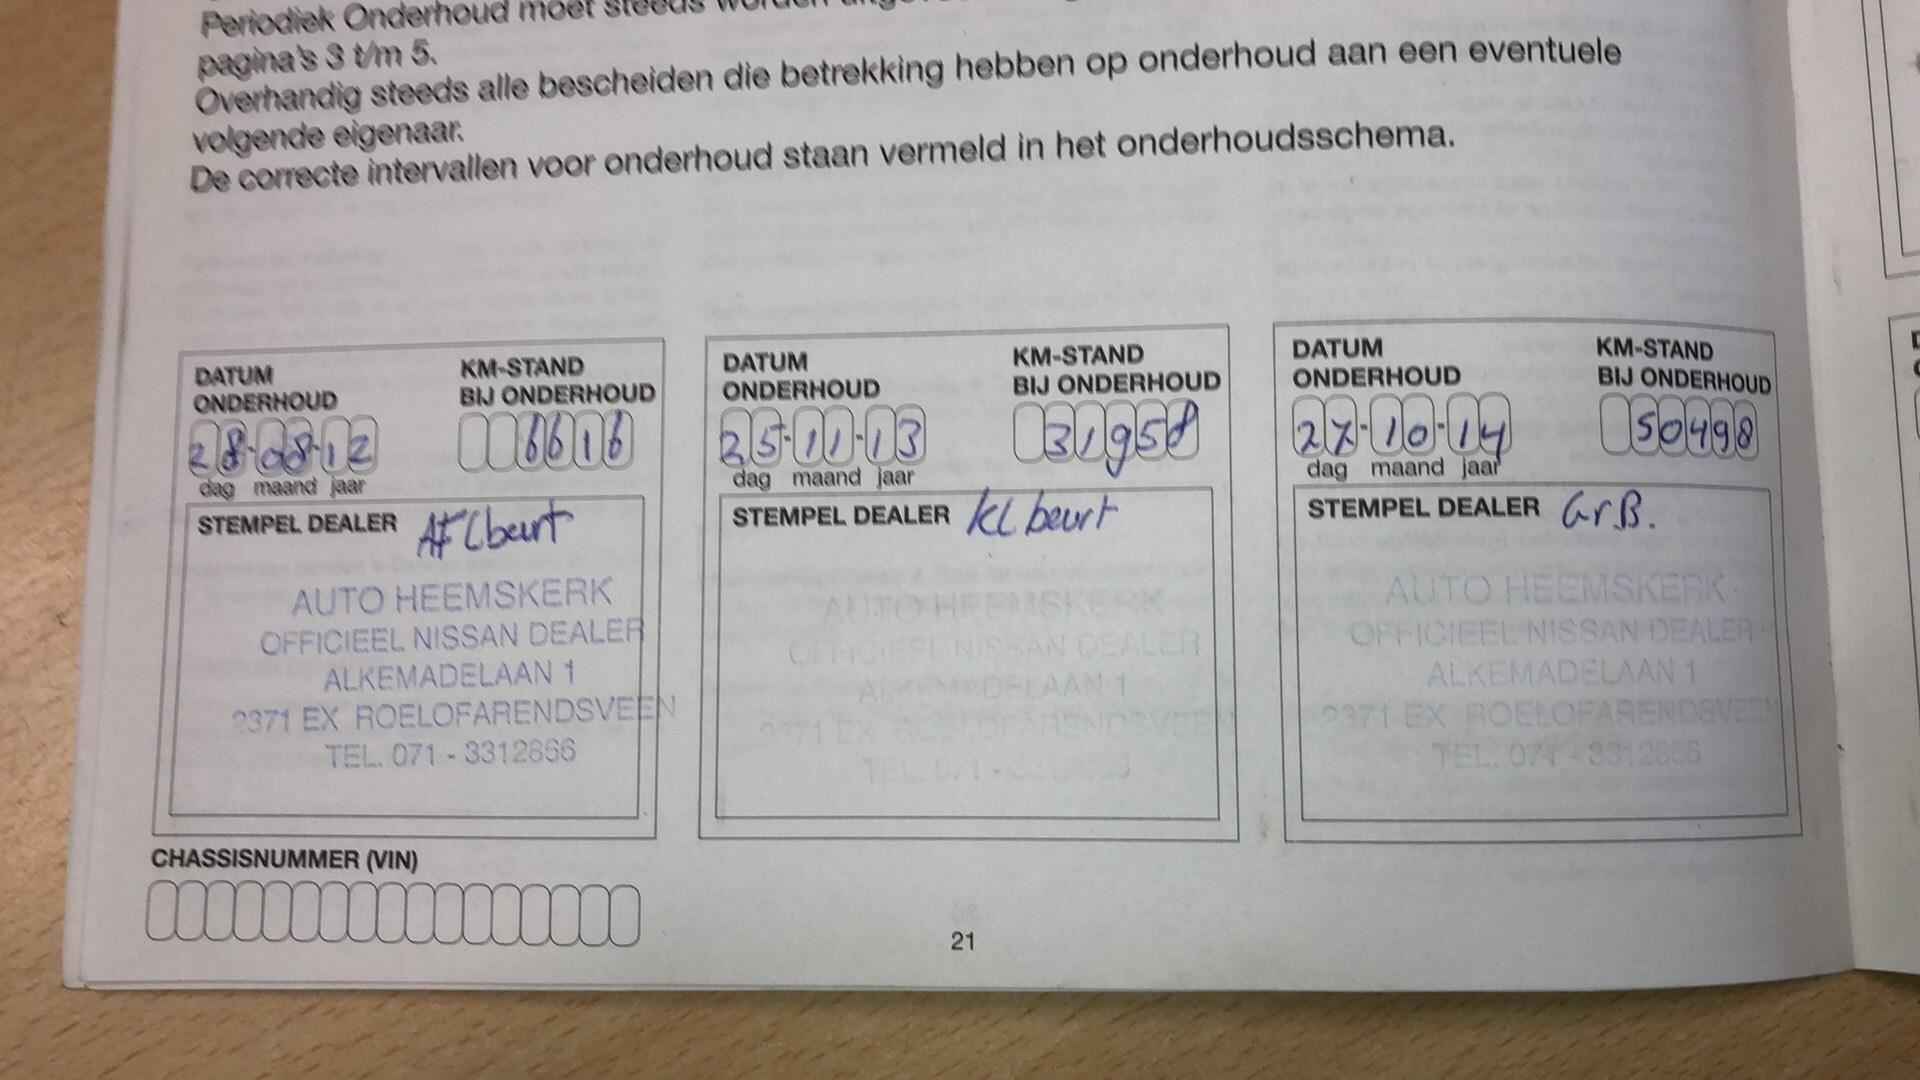 Periodiek Onderhoud moet steeds worden
pagina's 3 t/m 5.
Overhandig steeds alle bescheiden die betrekking hebben op onderhoud aan een eventuele
volgende eigenaar.
De correcte intervallen voor onderhoud staan vermeld in het onderhoudsschema.
DATUM ONDERHOUD
KM-STAND BIJ ONDERHOUD
28-08-12
6616
dag maand jaar
STEMPEL DEALER Aflbeurt
AUTO HEEMSKERK
OFFICIEEL NISSAN DEALER
ALKEMADELAAN 1
2371 EX ROELOFARENDSVEEN
TEL. 071 - 3312866
DATUM ONDERHOUD
KM-STAND BIJ ONDERHOUD
25-11-13
31958
dag maand jaar
STEMPEL DEALER kl beurt
AUTO HEEMSKERK
OFFICIEEL NISSAN DEALER
ALKEMADELAAN 1
2371 EX ROELOFARENDSVEEN
TEL. 071 -
DATUM ONDERHOUD
KM-STAND BIJ ONDERHOUD
27-10-14
50498
dag maand jaar
STEMPEL DEALER GrB.
AUTO HEEMSKERK
OFFICIEEL NISSAN DEALER
ALKEMADELAAN 1
2371 EX ROELOFARENDSVEEN
TEL. 071 - 3312866
CHASSISNUMMER (VIN)
21